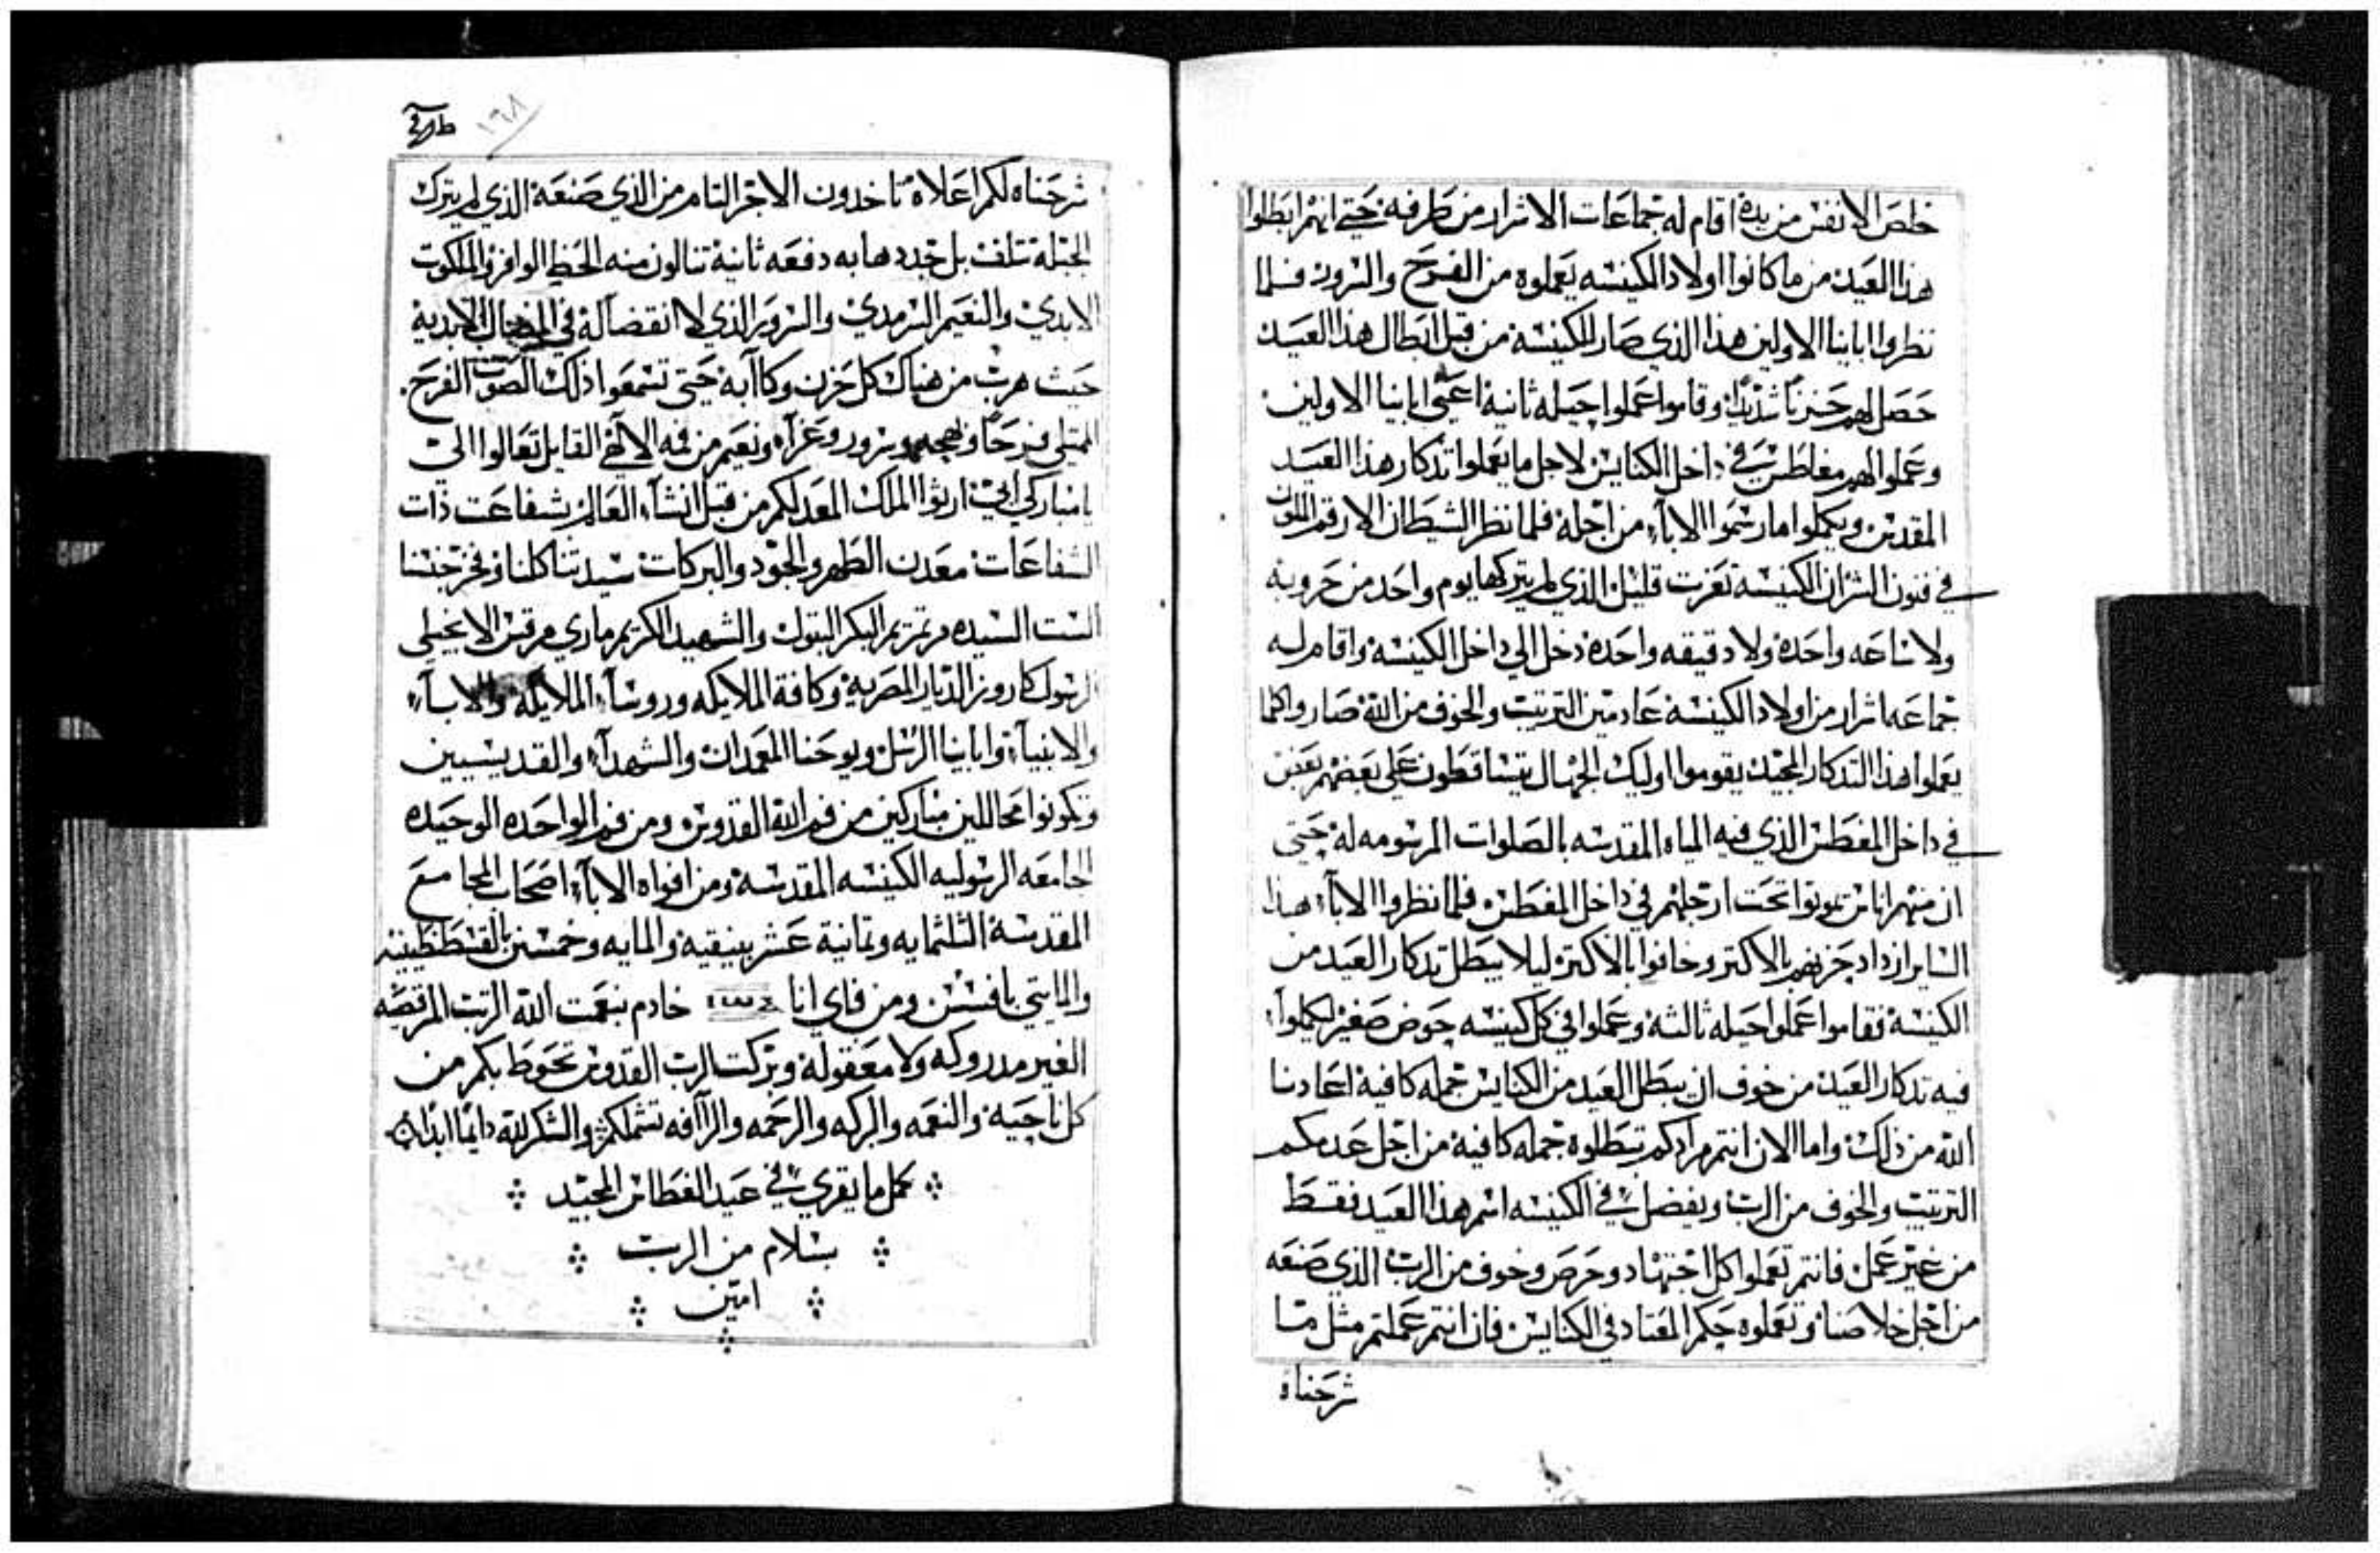 خلص الانفس من يده اقام له جماعات الاشرار من طرفه حتي انهم ابطلوا
هذا العيد من ما كانوا اولاد الكنيسه يعملوه من الفرح والسرور فلما
نظروا ابايئا الاولين هذا الذي صار للكنيسه من قبل ابطال هذا العيد
حصل لهم حزناً شديداً وقاموا عملوا حيله ثانيه اعني ابايئا الاولين
وعملوا لهم مغاطس في داخل الكنايس لاجل ما يعملوا تدكار هذا العيد
المقدس ويكملوا ما رسموا الاباء من اجله فلما نظر الشيطان الارقم الملعون
في فنون الشر ان الكنيسه تعزت قليل الذي لم يتركها يوم واحد من حروبه
ولا ساعه واحده ولا دقيقه واحده دخل الي داخل الكنيسه واقام له
جماعه اشرار من اولاد الكنيسه عادمين الترتيب والخوف من الله صاروا كلما
يعملوا هذا التدكار المجيد يقوموا اوليك الجهال يتساقطون علي بعضهم بعض
في داخل المغطس الذي فيه المياه المقدسه بالصلوات المرسومه له حتي
ان منهم اناس يموتوا تحت ارجلهم في داخل المغطس فلما نظروا الاباء هذا
الساير ازداد حزنهم بالاكتر وخافوا بالاكتر ليلا يبطل تدكار العيد من
الكنيسه فقاموا عملوا حيله ثالثه وعملوا في كل كنيسه حوض صغير ليكملوا
فيه تدكار العيد من خوف ان يبطل العيد من الكنايس جمله كافيه اعادنا
الله من ذلك واما الان انتم مرادكم تبطلوه جمله كافيه من اجل عدمكم
الترتيب والخوف من الرب ويفضل في الكنيسه اسم هذا العيد فقط
من غير عمل فانتم تعملوا كل اجتهاد وحرص وخوف من الرب الذي صنعه
من اجل خلاصنا وتعملوه حكم المعتاد في الكنايس فان انتم عملتم مثل ما
شرحناه
١٦٨
شرحناه لكم اعلاه تاخدون الاجر التام من الذي صنعه الذي لم يترك
الجبله تتلف بل جددها به دفعه ثانيه تنالون منه الحظ الوافر في الملكوت
الابدي والنعيم السرمدي والسرور الذي لا انقضاله في الابدية
حيث هرب من هناك كل حزن وكاابه حتي تسمعوا ذلك الصوت الفرح
الممتلي فرحاً وبهجه وسرور وعزاء ونعيم من فمه الالاهي القايل تعالوا الي
يا مباركي ابي ارثوا الملك المعد لكم من قبل انشاء العالم بشفاعت ذات
الشفاعات معدن الطهر والجود والبركات سيدتنا كلنا وفخر جنسنا
الست السيده مرتمريم البكر البتول والشهيد الكريم ماري مرقس الانجيلي
الرسول كاروز الديار المصريه وكافة الملايكه وروساء الملايكه والاباء
والانبياء وابايئا الرسل ويوحنا المعمدان والشهداء والقديسيين
وتكونوا محاللين مباركين من فم الله القدوس ومن فم الواحده الوحيده
الجامعه الرسوليه الكنيسه المقدسه ومن افواه الاباء اصحاب المجامع
المقدسه الثلثمايه وتمانية عشر بنيقيه والمايه وخمسين بالقسطنطينيه
والمايتي بافسس ومن فاي انا خادم بنعمت الله الرتب المرقصه
الغير مدروكه ولا معقوله وبركت الرب القدوس تحوط بكم من
كل ناحيه والنعمه والبركه والرحمه والراافه تشملكم والشكر لله دايماً ابداً
كمل ما يقري في عيد الغطاس المجيد
بسلام من الرب
امين